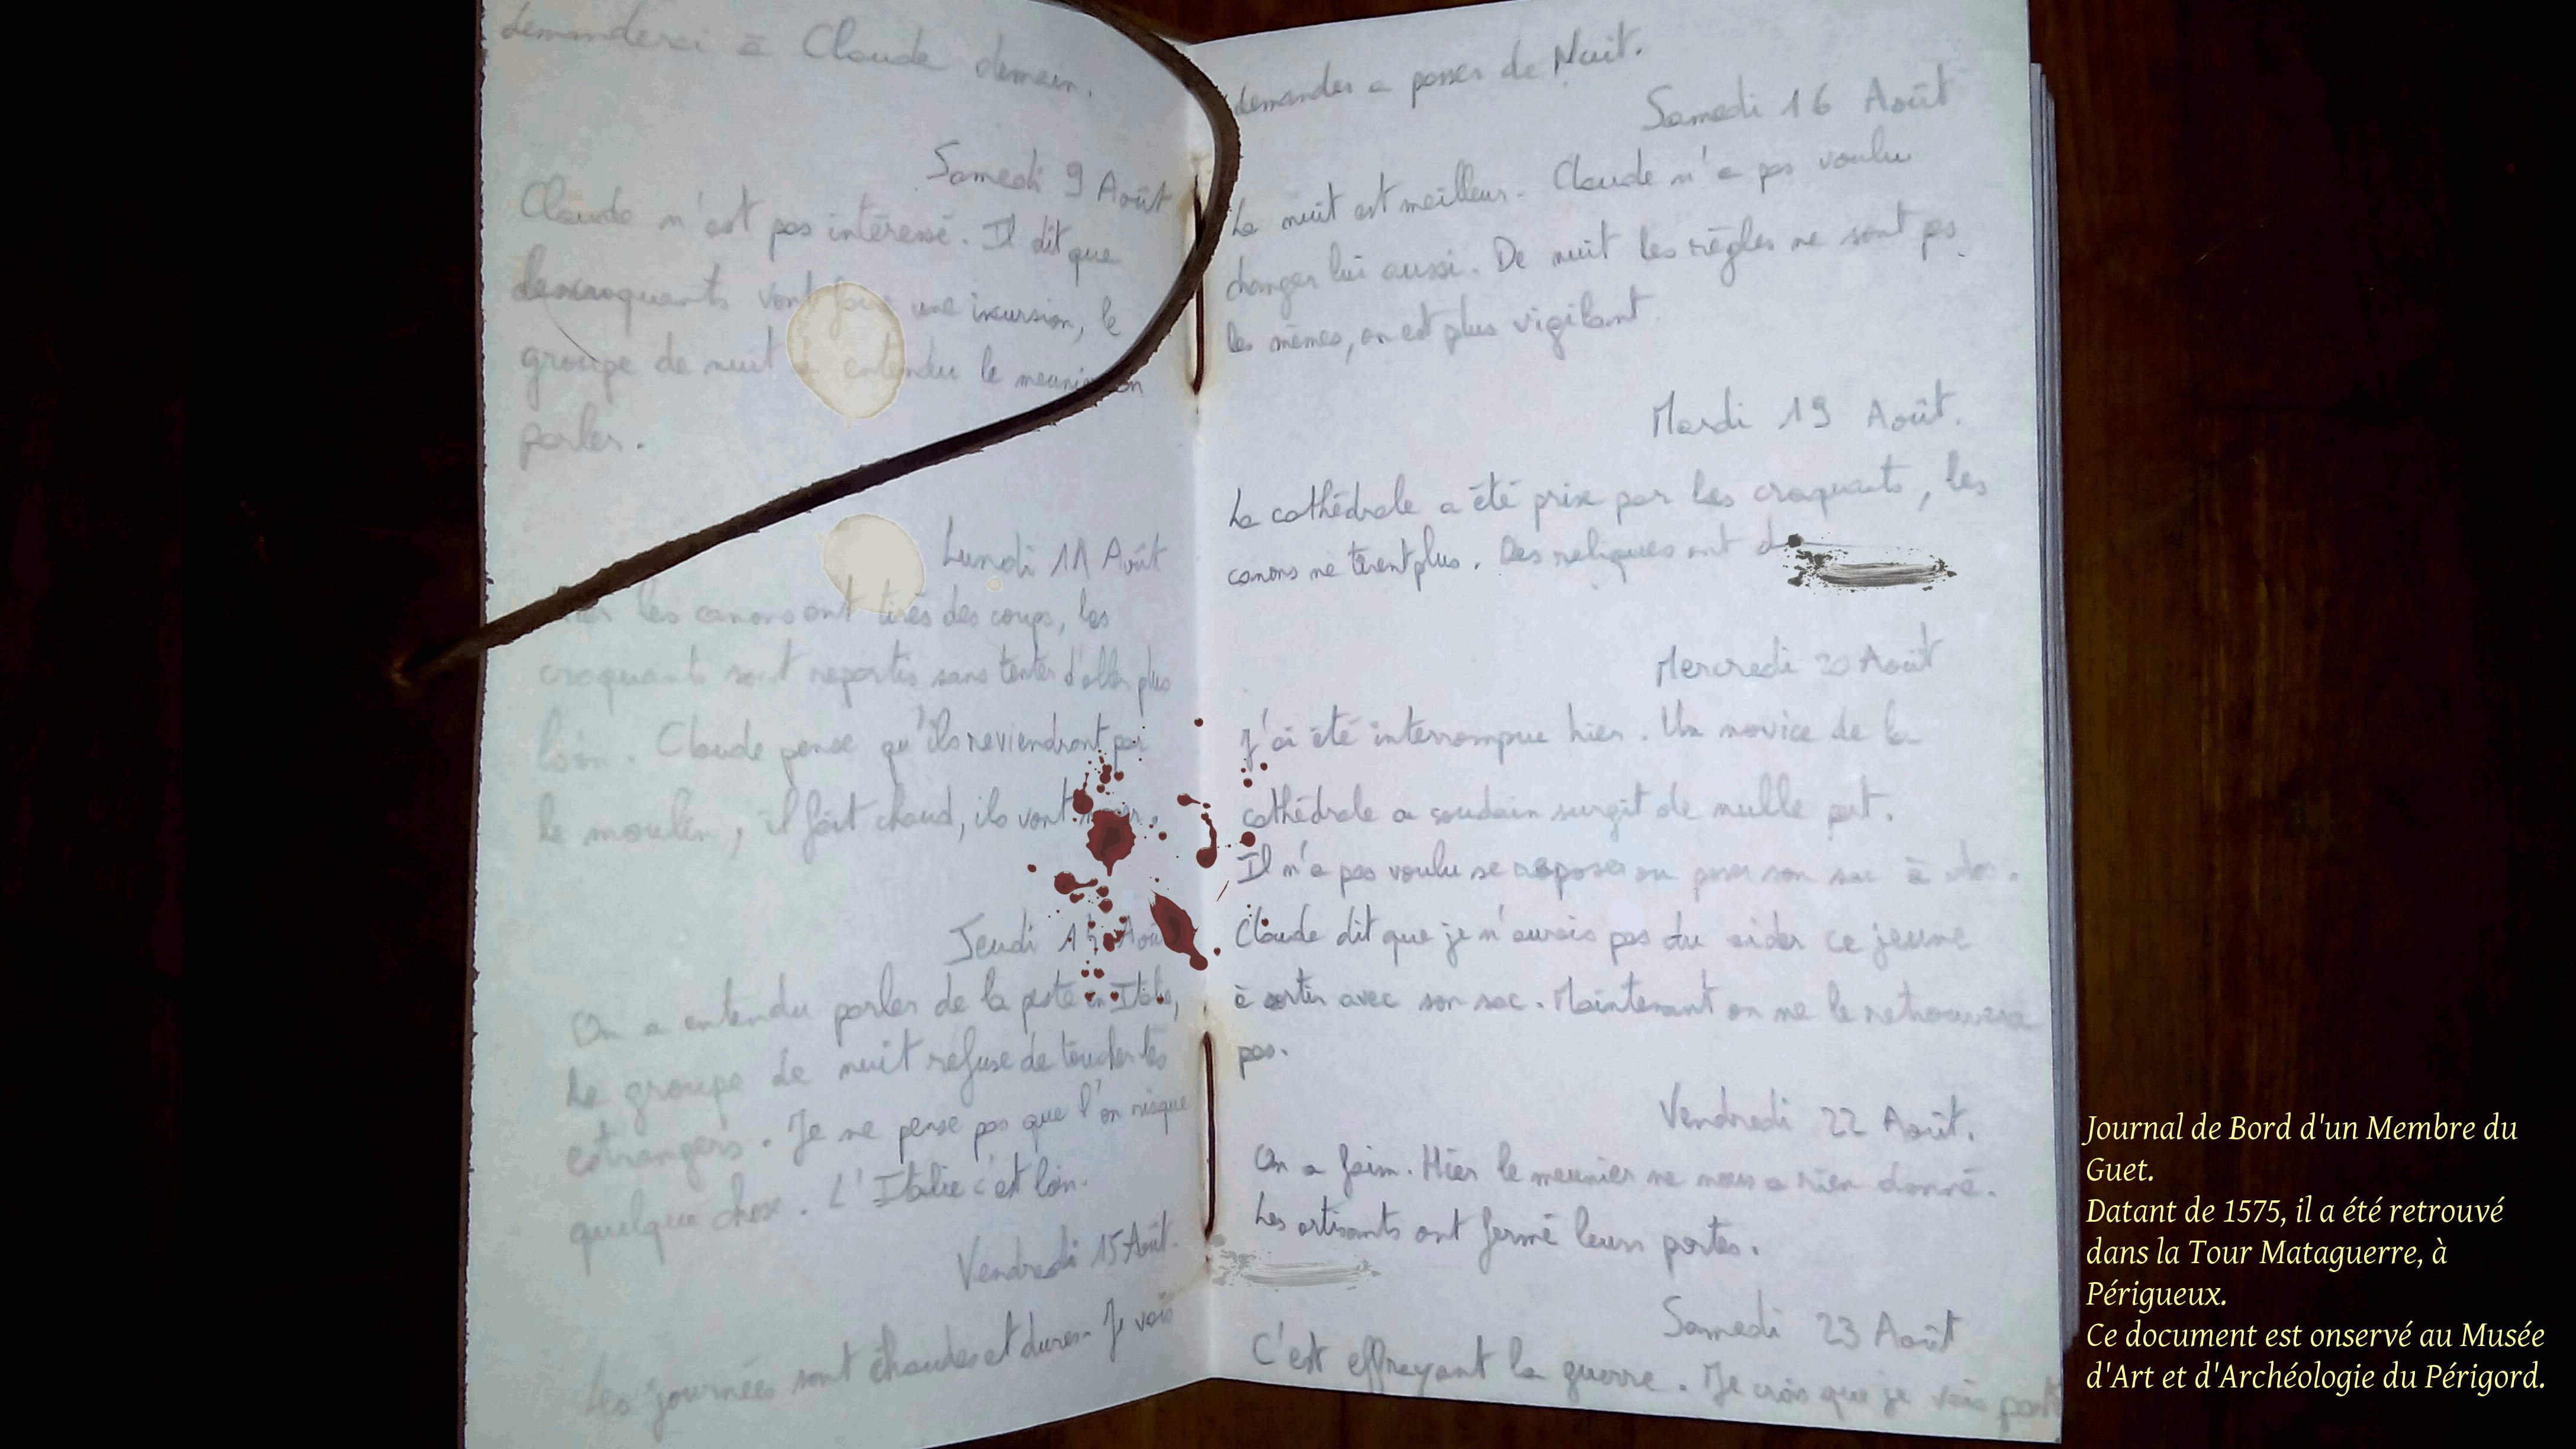 demanderai à Claude demain.
Samedi 9 Août
Claude n'est pas intéressé. Il dit que
croquants vont faire une incursion, le
groupe de nuit a entendu le meunier en
parler.
Lundi 11 Août
Hier les canons ont tirés des coups, les
croquants sont repartis sans tenter d'aller plus
loin. Claude pense qu'ils reviendront par
le moulin, il fait chaud, ils vont
Jeudi 14 Août
On a entendu parler de la peste en Italie,
le groupe de nuit refuse de toucher les
estrangers. Je ne pense pas que l'on risque
quelque chose. L'Italie c'est loin.
Vendredi 15 Août.
Les journées sont chaudes et dures. Je vais
demander a passer de Nuit.
Samedi 16 Août
La nuit est meilleur. Claude n'a pas voulu
changer lui aussi. De nuit les règles ne sont pas
les mêmes, on est plus vigilant.
Mardi 19 Août.
La cathédrale a été prise par les croquants, les
canons ne tirent plus. Des reliques ont d
Mercredi 20 Août
J'ai été interrompue hier. Un novice de la
cathédrale a soudain surgit de nulle part.
Il n'a pas voulu se reposer ou poser son sac à dos.
Claude dit que je n'aurais pas du aider ce jeune
à sortir avec son sac. Maintenant on ne le retrouvera
pas.
Vendredi 22 Août.
On a faim. Hier le meunier ne nous a rien donné.
Les artisants ont fermé leurs portes.
Samedi 23 Août
C'est effrayant la guerre. Je crois que je vais
Journal de Bord d'un Membre du
Guet.
Datant de 1575, il a été retrouvé
dans la Tour Mataguerre, à
Périgueux.
Ce document est onservé au Musée
d'Art et d'Archéologie du Périgord.